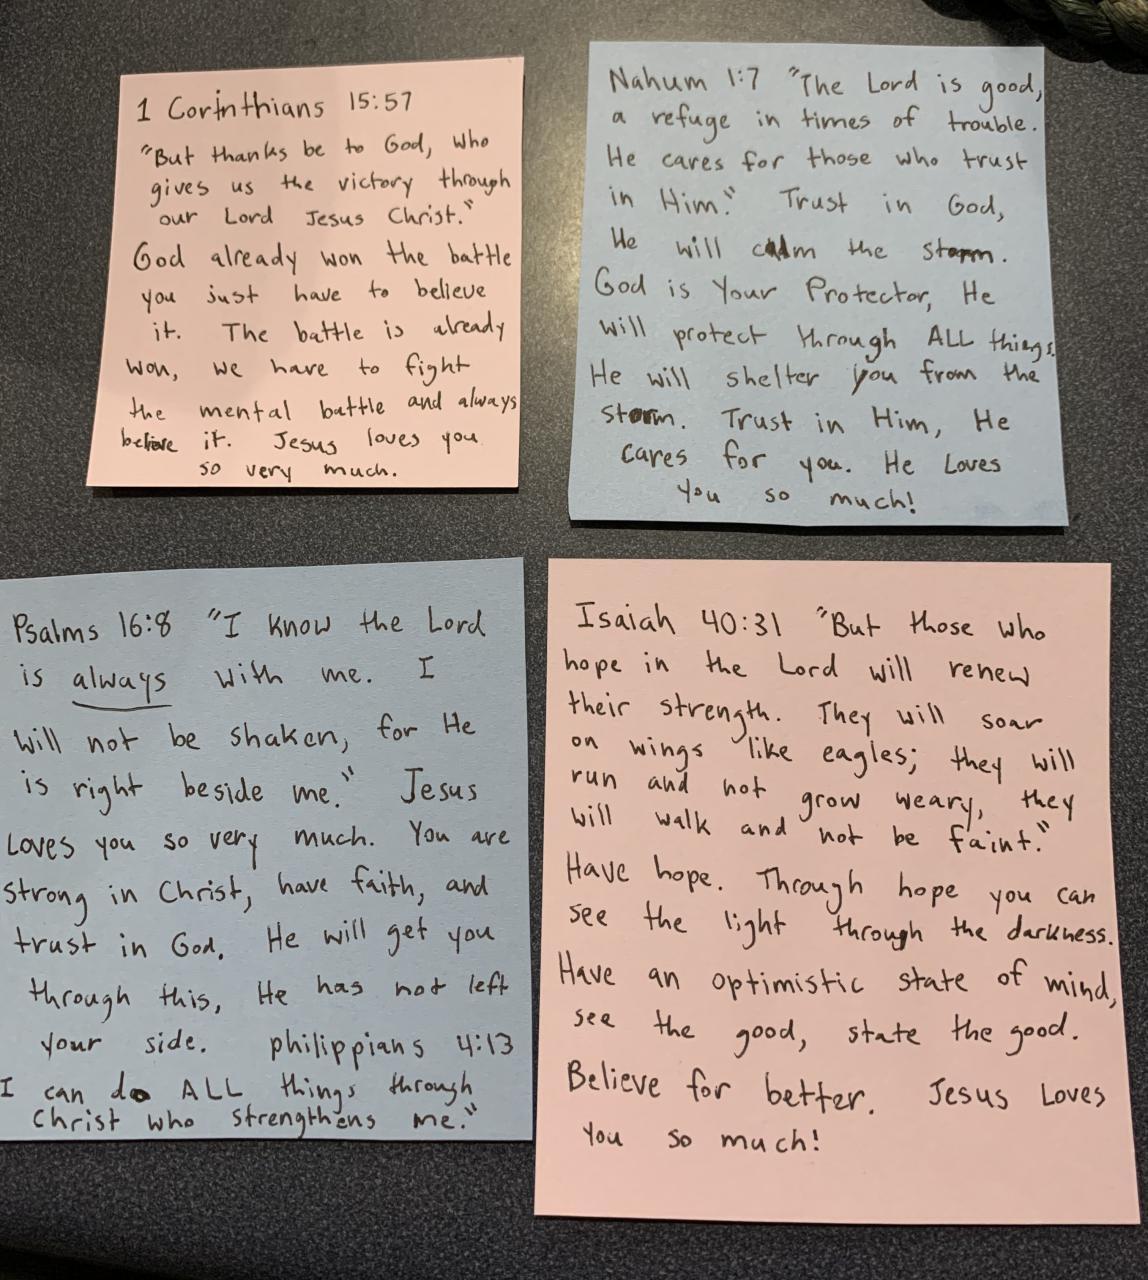 1 Corinthians 15:57
"But thanks be to God, who
gives us the victory through
our Lord Jesus Christ."
God already won the battle
you just have to believe
it. The battle is already
won, we have to fight
the mental battle and always
believe it. Jesus loves you
so very much.
Nahum 1:7 "The Lord is good,
a refuge in times of trouble.
He cares for those who trust
in Him." Trust in God,
He will calm the storm.
God is Your Protector, He
will protect through ALL things.
He will shelter you from the
storm. Trust in Him, He
cares for you. He Loves
You so much!
Psalms 16:8 "I know the Lord
is always with me. I
will not be shaken, for He
is right beside me." Jesus
Loves you so very much. You are
strong in Christ, have faith, and
trust in God. He will get you
through this, He has not left
your side. philippians 4:13
I can do ALL things through
Christ who strengthens me."
Isaiah 40:31 "But those who
hope in the Lord will renew
their strength. They will soar
on wings like eagles; they will
run and not grow weary, they
will walk and not be faint."
Have hope. Through hope you can
see the light through the darkness.
Have an optimistic state of mind,
see the good, state the good.
Believe for better. Jesus Loves
You so much!